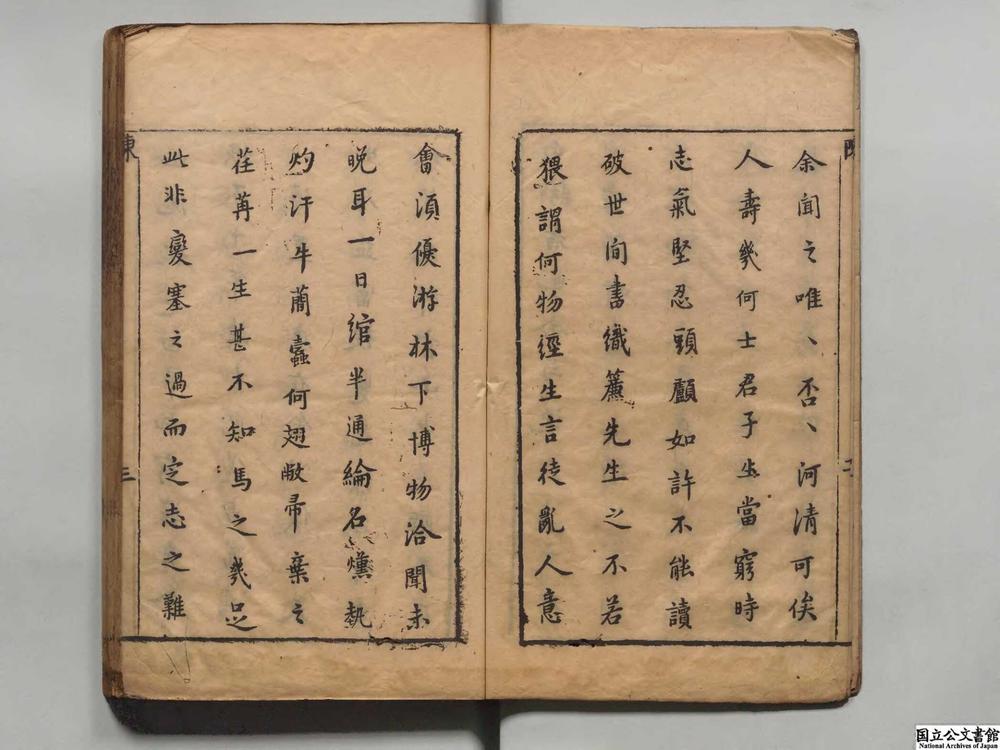 余聞之唯、否、河清可俟
人壽幾何士君子生當窮時
志氣堅忍頭顱如許不能讀
破世間書織簾先生之不若
猥謂何物經生言徒亂人意
會須優游林下博物洽聞未
晚耳一日綰半通綸名爋執
灼汗牛蘭蠹何翅敝帚棄之
荏苒一生甚不知馬之幾足
此非變塞之過而定志之難
三
国立公文書館
National Archives of Japan